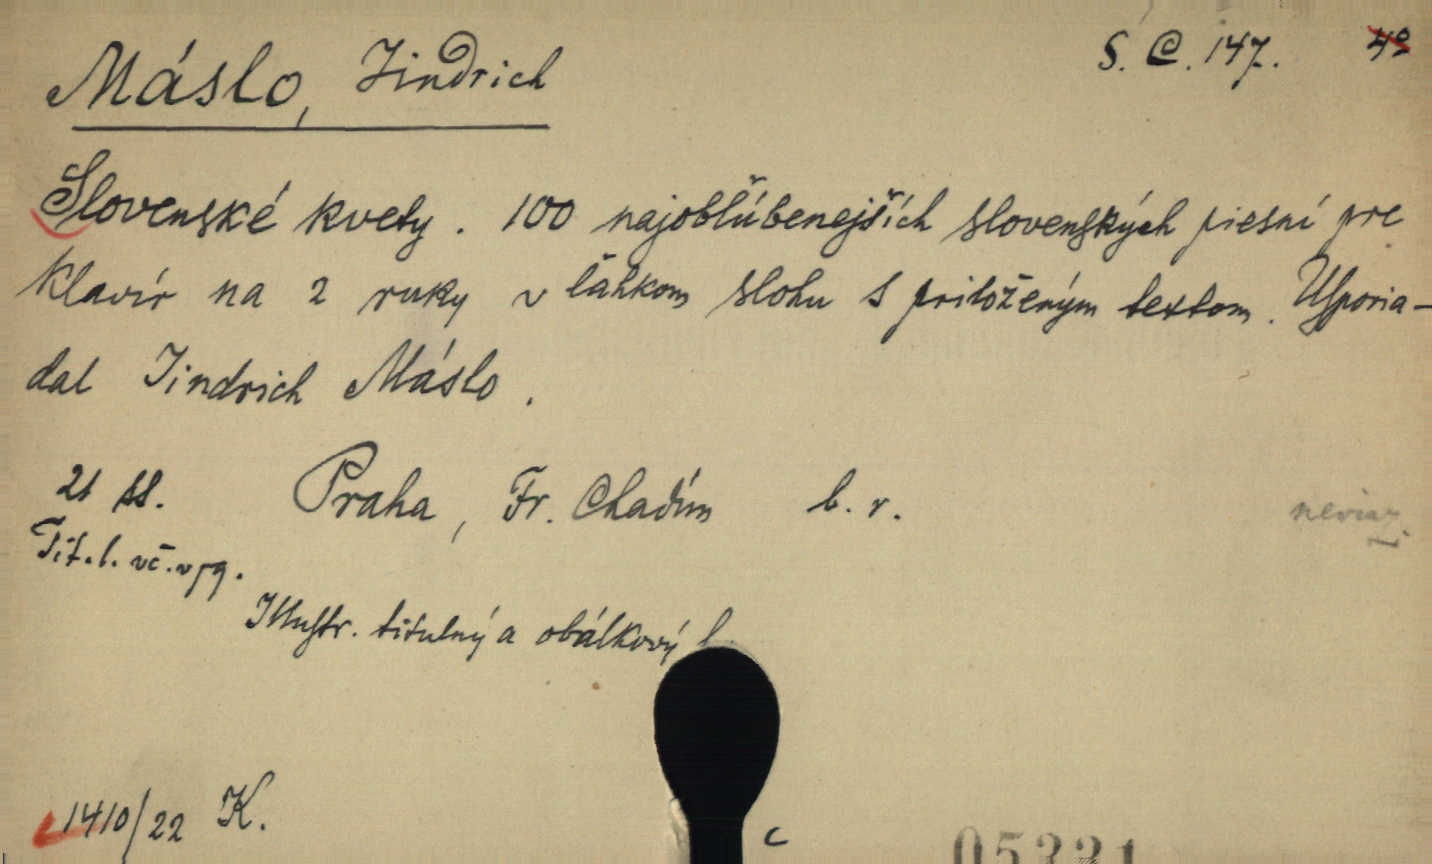 Máslo, Jindrich
S. C. 147. 4º
Slovenské kvety. 100 najobľúbenejších slovenských piesní pre
klavír na 2 ruky v ľahkom slohu s priloženým textom. Usporia-
dal Jindrich Máslo.
21 ss. Praha, Fr. Chadím b. r.
neviaz.
Tit. l. vč. v pg.
Illustr. titulný a obálkový l
1410/22 K.
c
05331